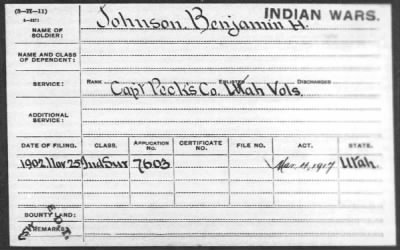 (3-XI-11)
INDIAN WARS.
NAME OF SOLDIER: Johnson, Benjamin H.
NAME AND CLASS OF DEPENDENT:
SERVICE: RANK ENLISTED DISCHARGED
Capt Peck's Co. Utah Vols.
ADDITIONAL SERVICE:
DATE OF FILING. CLASS. APPLICATION No. CERTIFICATE No. FILE No. ACT. STATE.
1902, Nov 25 Ind Sur 7603 Mar. 4, 1917 Utah.
BOUNTY LAND:
REMARKS: